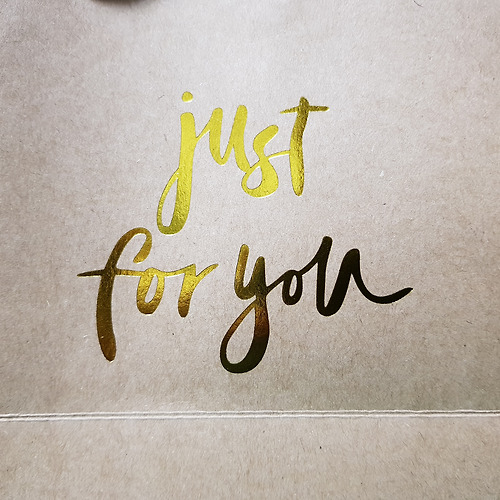 just
for you